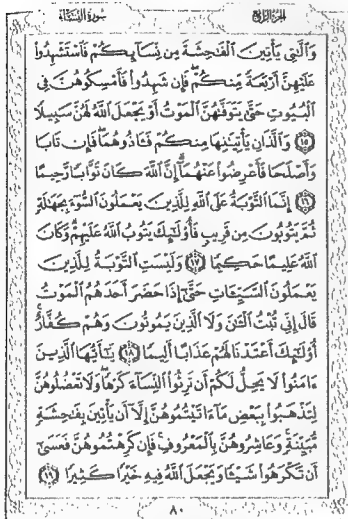 الجزء الرابع
سورة النساء
وَٱلَّٰتِى يَأْتِينَ ٱلْفَٰحِشَةَ مِن نِّسَآئِكُمْ فَٱسْتَشْهِدُوا۟
عَلَيْهِنَّ أَرْبَعَةً مِّنكُمْ ۖ فَإِن شَهِدُوا۟ فَأَمْسِكُوهُنَّ فِى
ٱلْبُيُوتِ حَتَّىٰ يَتَوَفَّىٰهُنَّ ٱلْمَوْتُ أَوْ يَجْعَلَ ٱللَّهُ لَهُنَّ سَبِيلًا
﴿١٥﴾ وَٱلَّذَانِ يَأْتِيَٰنِهَا مِنكُمْ فَـَٔاذُوهُمَا ۖ فَإِن تَابَا
وَأَصْلَحَا فَأَعْرِضُوا۟ عَنْهُمَآ ۗ إِنَّ ٱللَّهَ كَانَ تَوَّابًا رَّحِيمًا
﴿١٦﴾ إِنَّمَا ٱلتَّوْبَةُ عَلَى ٱللَّهِ لِلَّذِينَ يَعْمَلُونَ ٱلسُّوٓءَ بِجَهَٰلَةٍ
ثُمَّ يَتُوبُونَ مِن قَرِيبٍ فَأُو۟لَٰٓئِكَ يَتُوبُ ٱللَّهُ عَلَيْهِمْ ۗ وَكَانَ
ٱللَّهُ عَلِيمًا حَكِيمًا ﴿١٧﴾ وَلَيْسَتِ ٱلتَّوْبَةُ لِلَّذِينَ
يَعْمَلُونَ ٱلسَّيِّـَٔاتِ حَتَّىٰٓ إِذَا حَضَرَ أَحَدَهُمُ ٱلْمَوْتُ
قَالَ إِنِّى تُبْتُ ٱلْـَٰٔنَ وَلَا ٱلَّذِينَ يَمُوتُونَ وَهُمْ كُفَّارٌ ۚ
أُو۟لَٰٓئِكَ أَعْتَدْنَا لَهُمْ عَذَابًا أَلِيمًا ﴿١٨﴾ يَٰٓأَيُّهَا ٱلَّذِينَ
ءَامَنُوا۟ لَا يَحِلُّ لَكُمْ أَن تَرِثُوا۟ ٱلنِّسَآءَ كَرْهًا ۖ وَلَا تَعْضُلُوهُنَّ
لِتَذْهَبُوا۟ بِبَعْضِ مَآ ءَاتَيْتُمُوهُنَّ إِلَّآ أَن يَأْتِينَ بِفَٰحِشَةٍ
مُّبَيِّنَةٍ ۚ وَعَاشِرُوهُنَّ بِٱلْمَعْرُوفِ ۚ فَإِن كَرِهْتُمُوهُنَّ فَعَسَىٰٓ
أَن تَكْرَهُوا۟ شَيْـًٔا وَيَجْعَلَ ٱللَّهُ فِيهِ خَيْرًا كَثِيرًا ﴿١٩﴾
٨٠